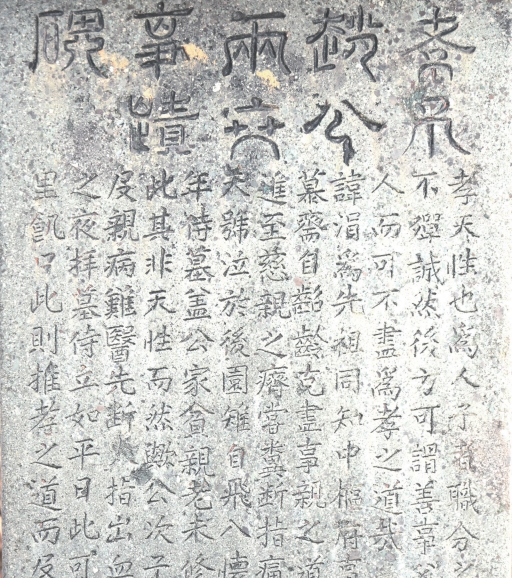 孝
趙公
兩世
事蹟
碣
孝天性也爲人子者職分
不殫誠然後方可謂善事
人而可不盡爲孝之道哉
諱涓爲先祖同知中樞府
慕齋自齠齡克盡事親之道
進至慈親之癠嘗糞斷指痛
天號泣於後園雉自飛入懷
年侍墓盖公家貧親老未修
此其非天性而然歟公次子
及親病難醫先斷指出血
之夜拜墓侍立如平日此可
里飢口此則推孝之道而及